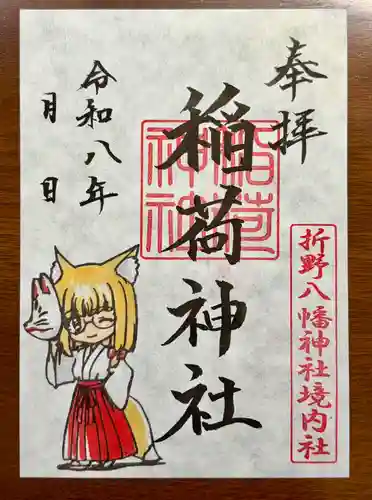 奉拝
稲荷神社
稲荷
神社
折野八幡神社境内社
令和八年
月 日